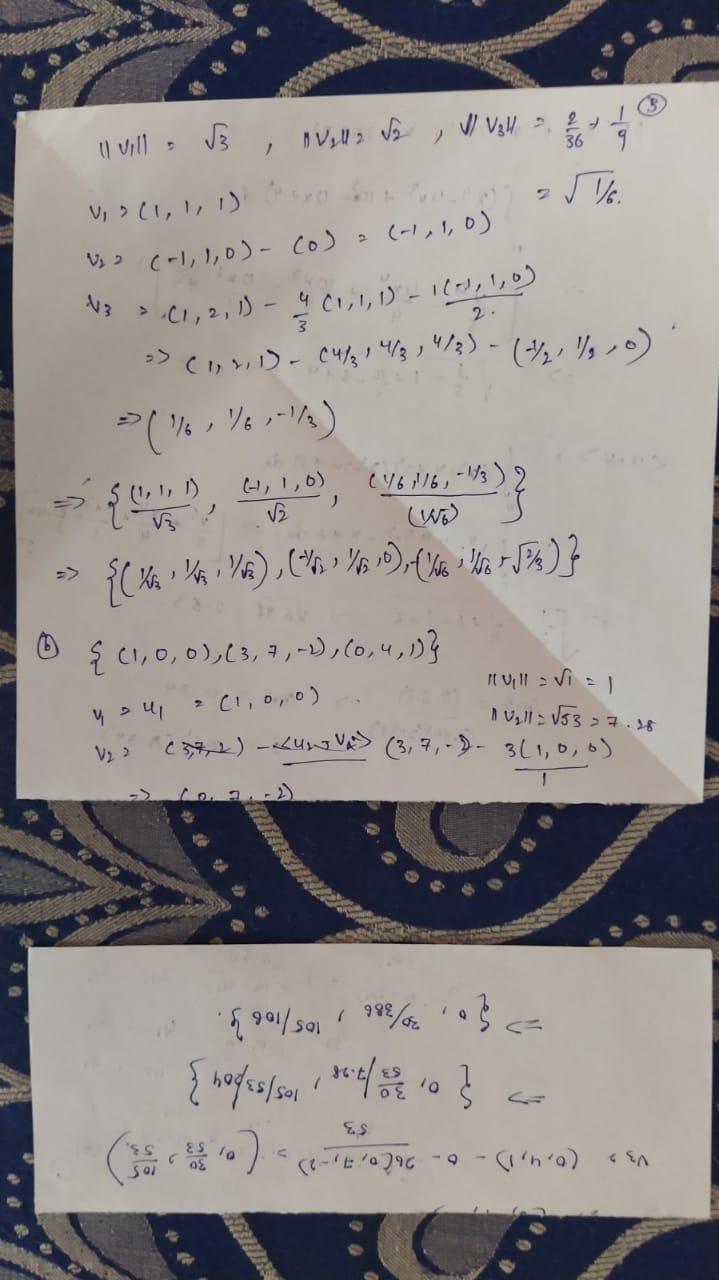 ③
||v₁|| = √3 , ||v₂|| = √2 , √||v₃|| = 2/36 + 1/9
= √1/6.
v₁ = (1, 1, 1)
v₂ = (-1, 1, 0) - (0) = (-1, 1, 0)
v₃ = (1, 2, 1) - 4/3 (1, 1, 1) - 1(-1, 1, 0)/2.
=> (1, 2, 1) - (4/3, 4/3, 4/3) - (-1/2, 1/2, 0)
=> (1/6, 1/6, -1/3)
=> {(1, 1, 1)/√3, (-1, 1, 0)/√2, (1/6, 1/6, -1/3)/(1/√6)}
=> {(1/√3, 1/√3, 1/√3), (-1/√2, 1/√2, 0), (1/√6, 1/√6, -√2/3)}
ⓑ { (1, 0, 0), (3, 7, -2), (0, 4, 1)}
||v₁|| = √1 = 1
v₁ = u₁ = (1, 0, 0)
||v₂|| = √53 = 7.28
v₂ = (3, 7, -2) - 3(1, 0, 0)/1
=> (0, 7, -2)
v₃ = (0, 4, 1) - 0 - 26(0, 7, -2)/53 = (0, 30/53, 105/53)
=> { 0, 30/53/7.28, 105/53,204 }
=> { 0, 30/386, 105/106 }.